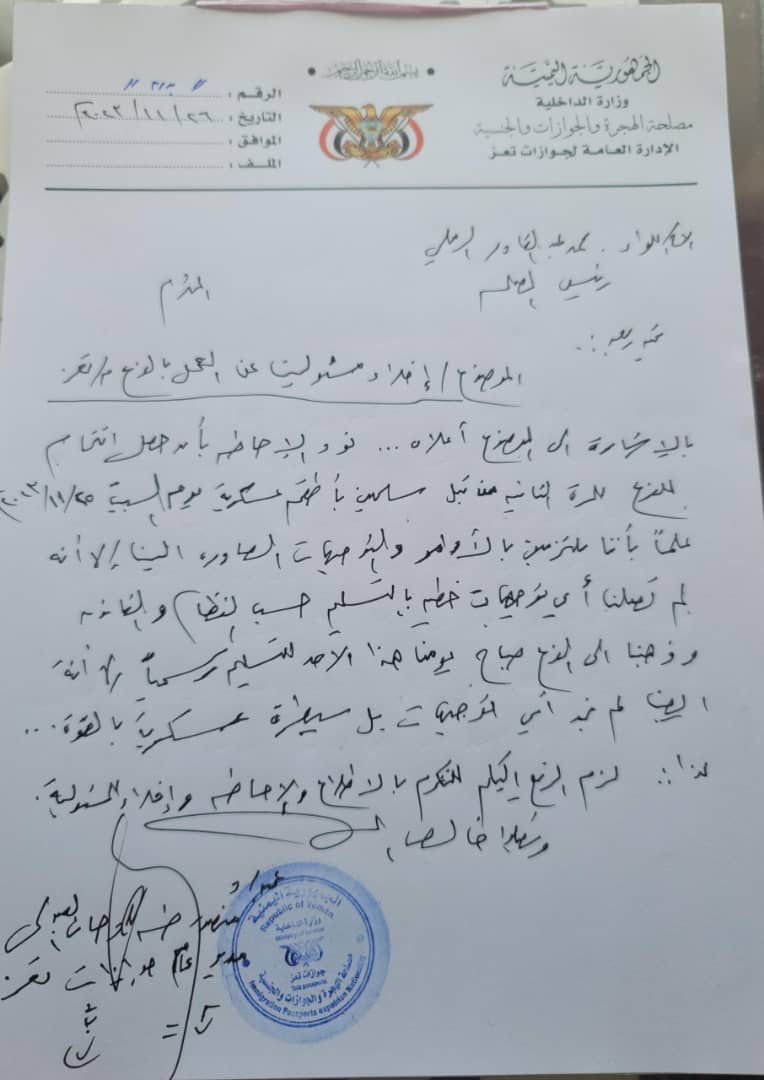 الجمهورية اليمنية
وزارة الداخلية
مصلحة الهجرة والجوازات والجنسية
الإدارة العامة لجوازات تعز
بسم الله الرحمن الرحيم
الرقم :
التاريخ : ٢٦/١١/٢٠٢٣
الموافق :
الملف :
الاخ اللواء . عبد القادر
رئيس المصلحة
المحترم
تحية وبعد ..
الموضوع / إخلاء مسئوليتنا عن العمل بالفرع م/تعز
بالاشارة الى الموضوع أعلاه ... نود الإحاطة بأنه حصل اقتحام
للفرع للمرة الثانية من قبل مسلحين بأطقم عسكرية يوم السبت ٢٥/١١/٢٠٢٣
علماً بأننا ملتزمين بالأوامر والتوجيهات الصادرة الينا إلا أنه
لم تصلنا أي توجيهات خطية بالتسليم حسب النظام والقانون
وذهبنا الى الفرع صباح يومنا هذا الأحد للتسليم رسمياً إلا أنه
ايضا لم نجد أي توجيهات بل سيطرة عسكرية بالقوة ...
لذا :. لزم الرفع إليكم للتكرم بالاطلاع والإحاطة وإخلاء المسئولية .
وشكرا خالصا
عميد/
مدير عام جوازات تعز
الجمهورية اليمنية
Republic of Yemen
وزارة الداخلية
Ministry of Interior
جوازات تعز
مصلحة الهجرة والجوازات والجنسية